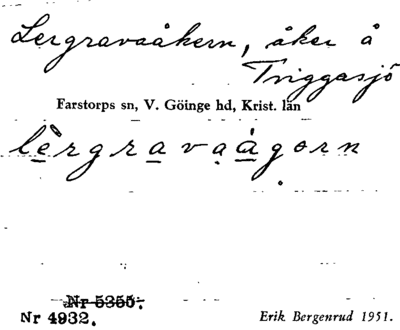 Lergravaåkern, åker å
Triggasjö
Farstorps sn, V. Göinge hd, Krist. län
lèrgravaågorn
Nr 5355.
Nr 4932.
Erik Bergenrud 1951.